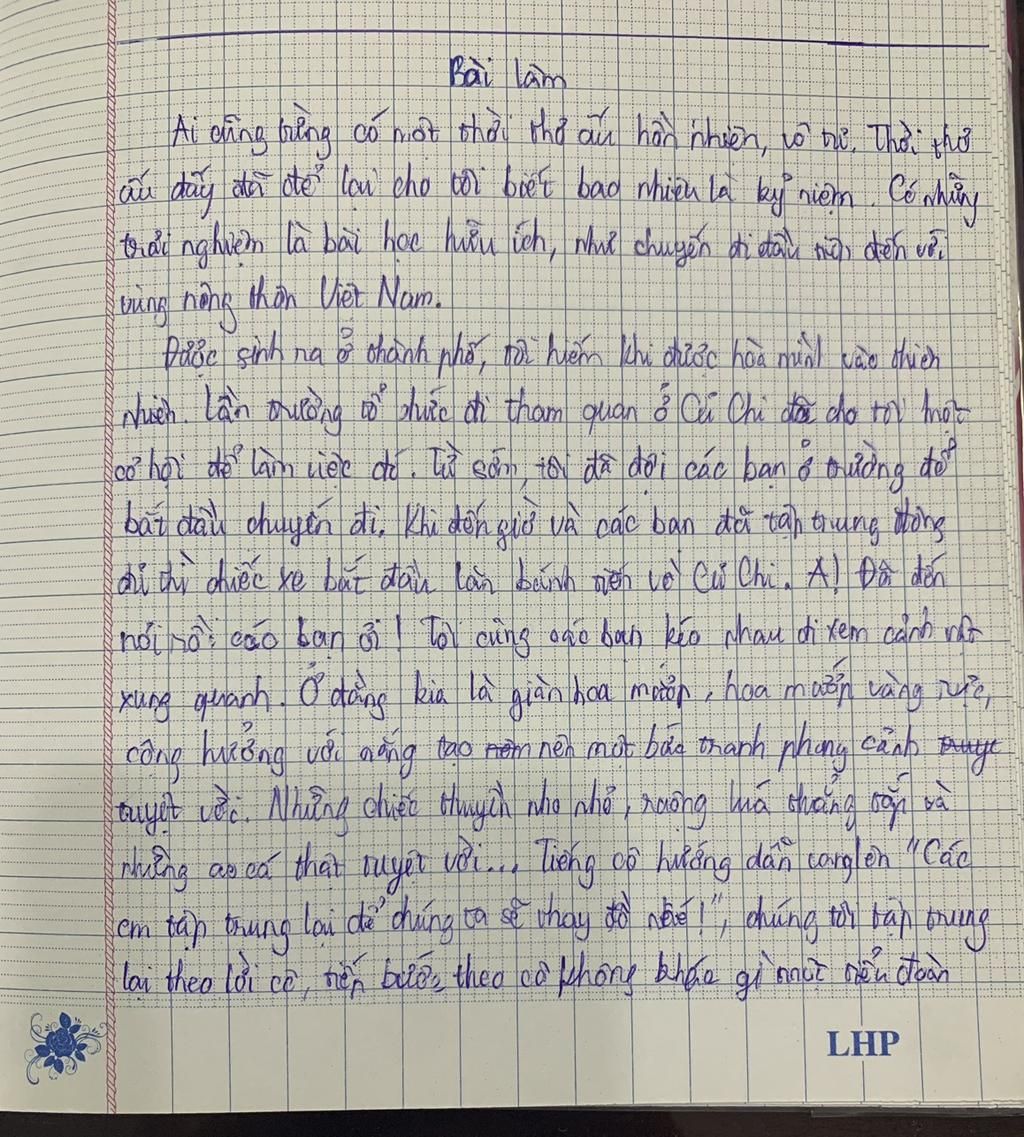 Bài làm
Ai cũng từng có một thời thơ ấu hồn nhiên, vô tư. Thời thơ
ấu đấy đã để lại cho tôi biết bao nhiêu là kỷ niệm. Có những
trải nghiệm là bài học hữu ích, như chuyến đi đầu tiên đến với
vùng nông thôn Việt Nam.
Được sinh ra ở thành phố, tôi hiếm khi được hoà mình vào thiên
nhiên. Lần trường tổ chức đi tham quan ở Củ Chi đã cho tôi một
cơ hội để làm việc đó. Từ sớm, tôi đã đợi các bạn ở trường để
bắt đầu chuyến đi. Khi đến giờ và các bạn đã tập trung đông
đủ thì chiếc xe bắt đầu lăn bánh tiến về Củ Chi. A! Đã đến
nơi rồi các bạn ơi! Tôi cùng các bạn kéo nhau đi xem cảnh vật
xung quanh. Ở đằng kia là giàn hoa mướp, hoa mướp vàng rực,
cộng hưởng với nắng tạo nên một bức tranh phong cảnh
tuyệt vời. Những chiếc thuyền nho nhỏ, ruộng lúa thẳng tắp và
những ao cá thật tuyệt vời... Tiếng cô hướng dẫn vang lên "Các
em tập trung lại để chúng ta sẽ thay đồ nhé!", chúng tôi tập trung
lại theo lời cô, tiến bước theo cô không khác gì một tiểu đoàn
LHP